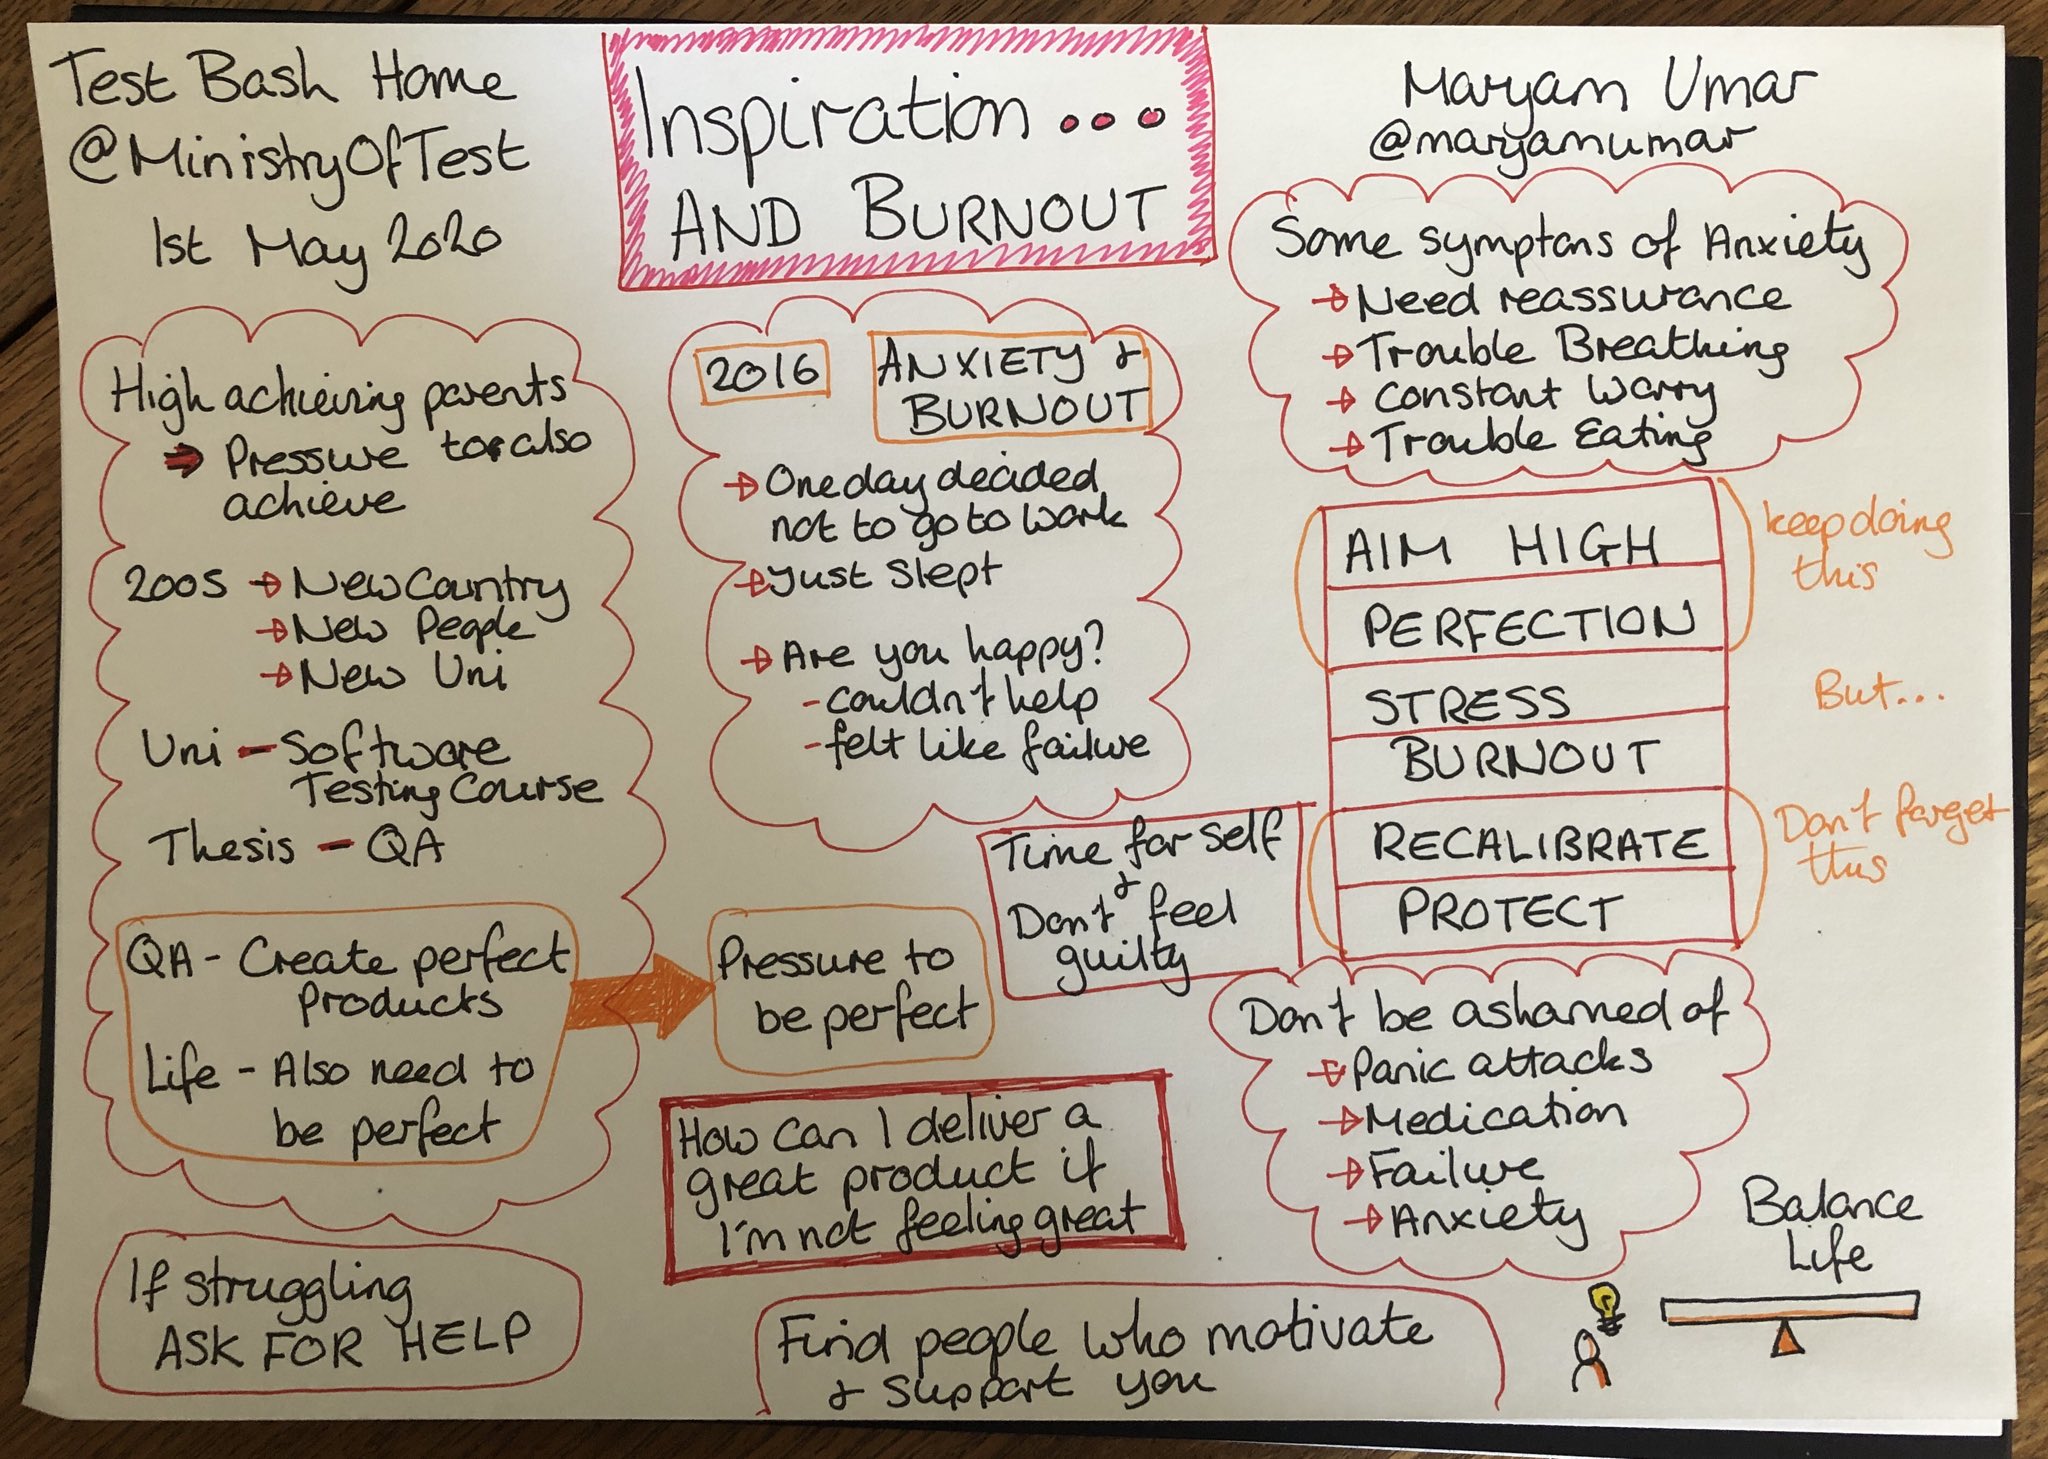 Test Bash Home
@MinistryOfTest
1st May 2020
Inspiration...
AND BURNOUT
Maryam Umar
@maryamumar
High achieving parents
Pressure to also
achieve
2005 → New Country
→ New People
→ New Uni
Uni - Software
Testing Course
Thesis - QA
QA - Create perfect
Products
Life - Also need to
be perfect
Pressure to
be perfect
If struggling
ASK FOR HELP
2016
ANXIETY &
BURNOUT
→ One day decided
not to go to work
→ Just slept
→ Are you happy?
- couldn't help
- felt like failure
Time for self
&
Don't feel
guilty
How can I deliver a
great product if
I'm not feeling great
Find people who motivate
& support you
Some symptons of Anxiety
→ Need reassurance
→ Trouble Breathing
→ constant worry
→ Trouble Eating
AIM HIGH
PERFECTION
STRESS
BURNOUT
RECALIBRATE
PROTECT
keep doing
this
But...
Don't forget
this
Don't be ashamed of
→ Panic attacks
→ Medication
→ Failure
→ Anxiety
Balance
Life